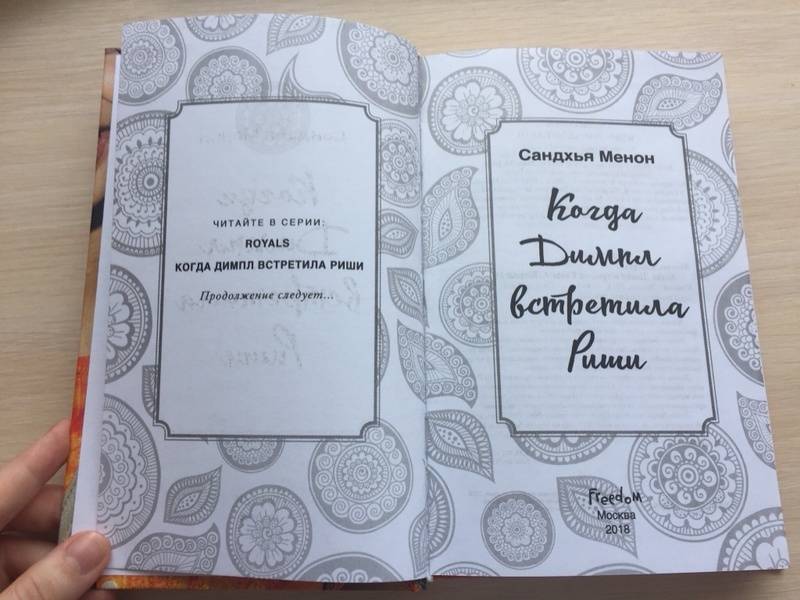 ЧИТАЙТЕ В СЕРИИ:
ROYALS
КОГДА ДИМПЛ ВСТРЕТИЛА РИШИ
Продолжение следует...
Сандхья Менон
Когда
Димпл
встретила
Риши
Freedom
Москва
2018